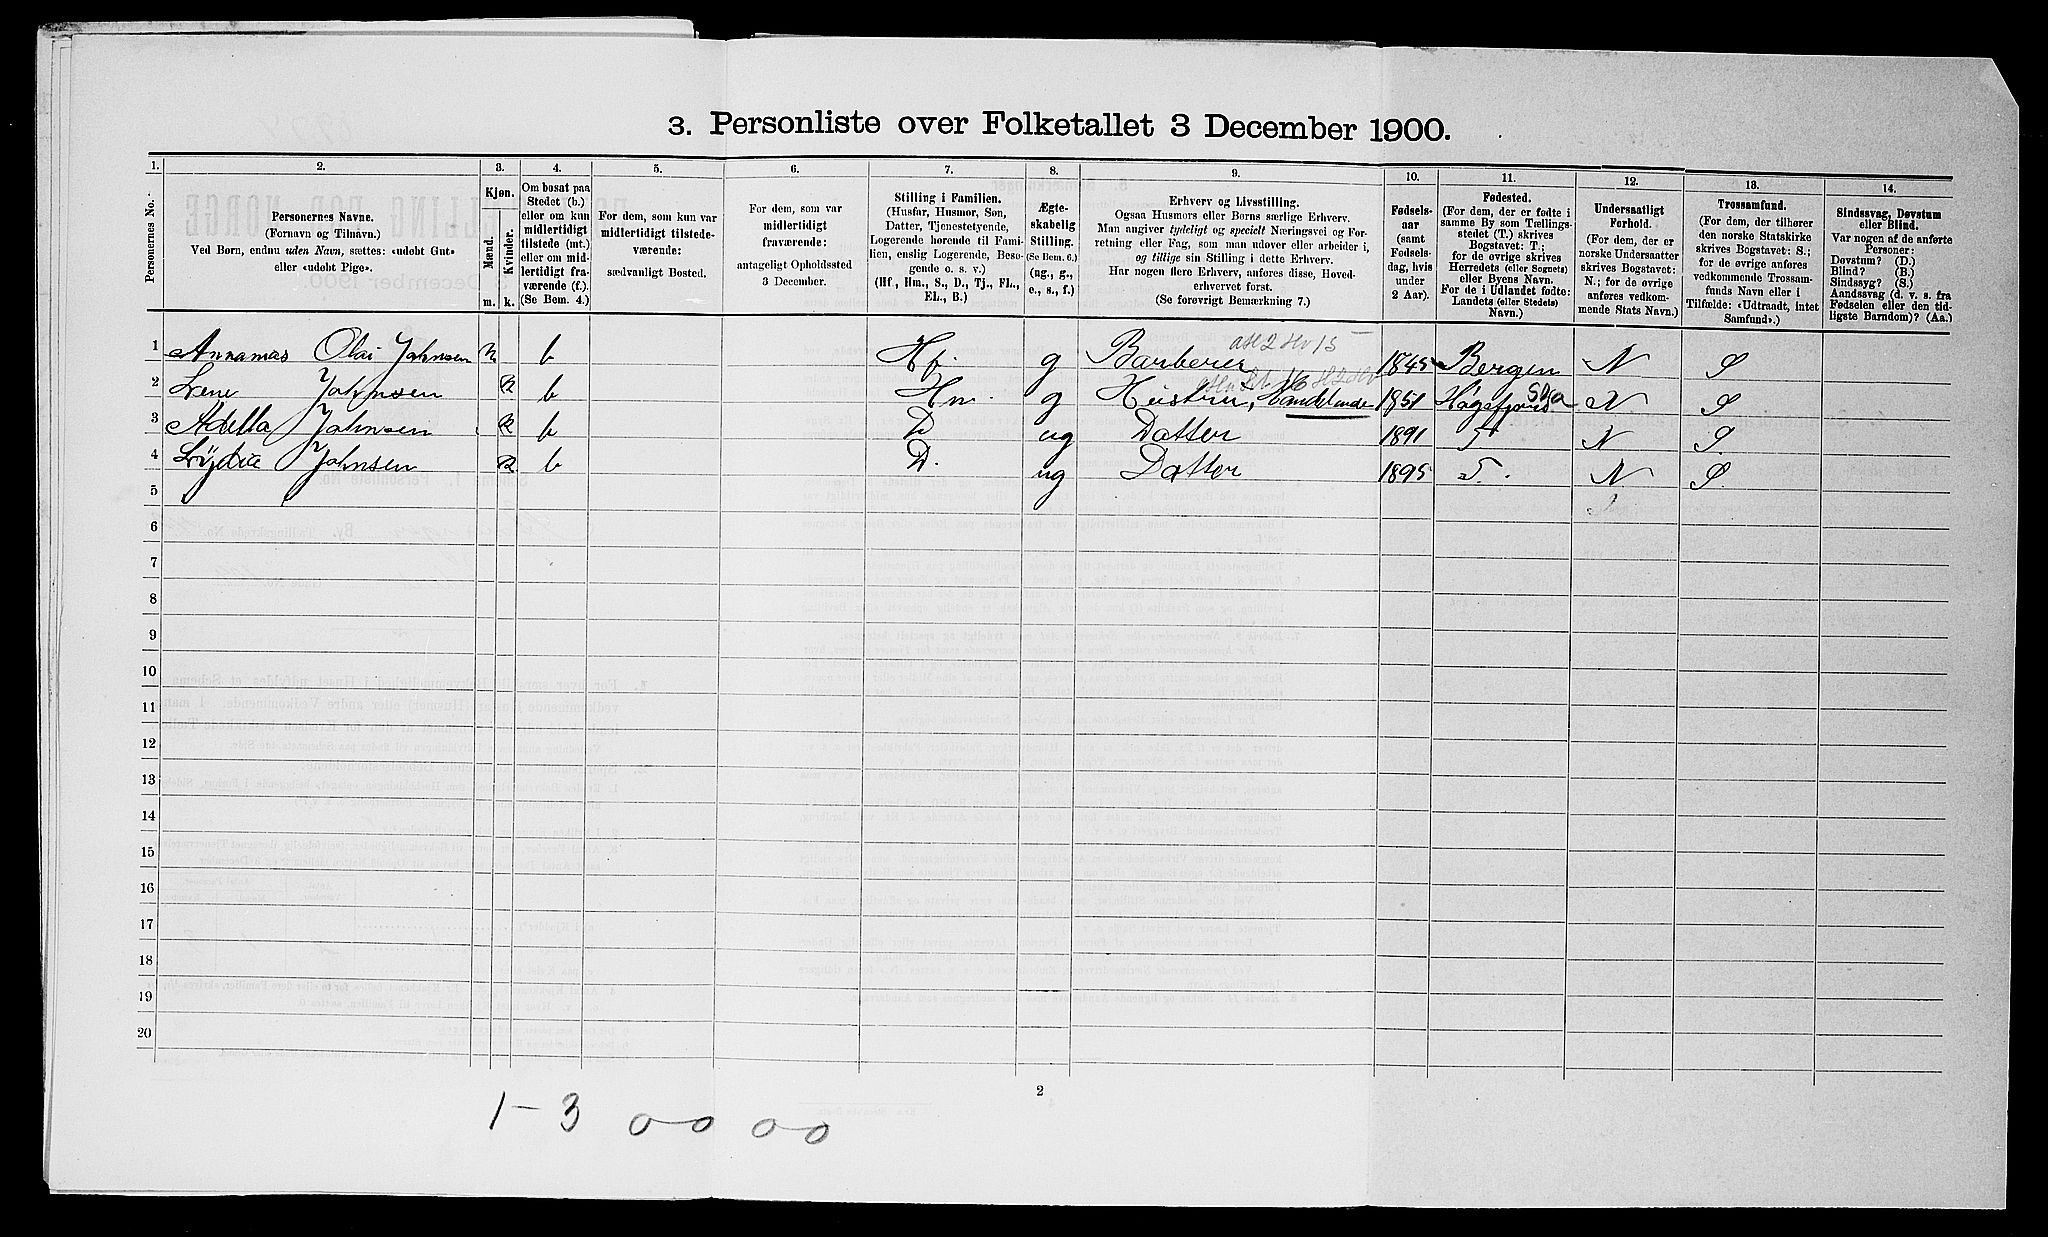 3. Personliste over Folketallet 3 December 1900.
1.
2.
3.
4.
5.
6.
7.
8.
9.
10.
11.
12.
13.
14.
Personernes No.
Personernes Navne.
(Fornavn og Tilnavn.)
Ved Børn, endnu uden Navn, sættes: «udøbt Gut»
eller «udøbt Pige».
Kjøn.
Mænd.
Kvinder.
m.
k.
Om bosat paa
Stedet (b.)
eller om kun
midlertidigt
tilstede (mt.)
eller om mid-
lertidigt fra-
værende (f.)
(Se Bem. 4.)
For dem, som kun var
midlertidigt tilstede-
værende:
sædvanligt Bosted.
For dem, som var
midlertidigt
fraværende:
antageligt Opholdssted
3 December.
Stilling i Familien.
(Husfar, Husmor, Søn,
Datter, Tjenestetyende,
Logerende hørende til Fami-
lien, enslig Logerende, Besø-
gende o. s. v.)
(Hf., Hm., S., D., Tj., FL.,
EL., B.)
Ægte-
skabelig
Stilling.
(Se Bem. 6.)
(ug., g.,
e., s., f.)
Erhverv og Livsstilling.
Ogsaa Husmors eller Børns særlige Erhverv.
Man angiver tydeligt og specielt Næringsvei og For-
retning eller Fag, som man udøver eller arbeider i,
og tillige sin Stilling i dette Erhverv.
Har nogen flere Erhverv, anføres disse, Hoved-
erhvervet først.
(Se forøvrigt Bemærkning 7.)
Fødsels-
aar
(samt
Fødsels-
dag, hvis
under
2 Aar).
Fødested.
(For dem, der er fødte i
samme By som Tællings-
stedet (T.) skrives
Bogstavet: T;
for de øvrige skrives
Herredets (eller Sognets)
eller Byens Navn.
For de i Udlandet fødte:
Landets (eller Stedets)
Navn.)
Undersaatligt
Forhold.
(For dem, der er
norske Undersaatter
skrives Bogstavet:
N.; for de øvrige
anføres vedkom-
mende Stats Navn.)
Trossamfund.
(For dem, der tilhører
den norske Statskirke
skrives Bogstavet: S.;
for de øvrige anføres
vedkommende Trossam-
funds Navn eller i
Tilfælde: «Udtraadt, intet
Samfund».)
Sindssvag, Døvstum
eller Blind.
Var nogen af de anførte
Personer:
Døvstum? (D.)
Blind? (B.)
Sindssyg? (S.)
Aandssvag (d. v. s. fra
Fødselen eller den tid-
ligste Barndom)? (Aa.)
1 Annanias Olai Johnsen m b Hf. g Barberer 1845 Bergen N S
2 Lene Johnsen k b Hm. g Hustru, Handlende 1851 Høgsfjord N S
3 Adella Johnsen k b D ug Datter 1891 T N S.
4 Lydia Johnsen k b D. ug Datter 1895 T. N S.
5
6
7
8
9
10
11
12
13
14
15
16
17
18
19
20
2
1-3 00 00